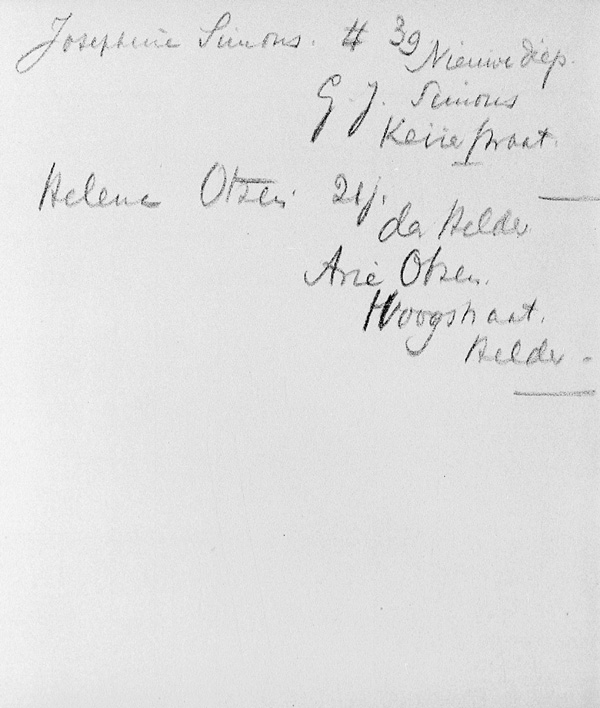 Josephine Simons. # 39
Nieuwe diep.
G. J. Simons
straat.
Helene Otsen 21j.
den Helder
Arie Otsen.
Hoogstraat.
Helder -